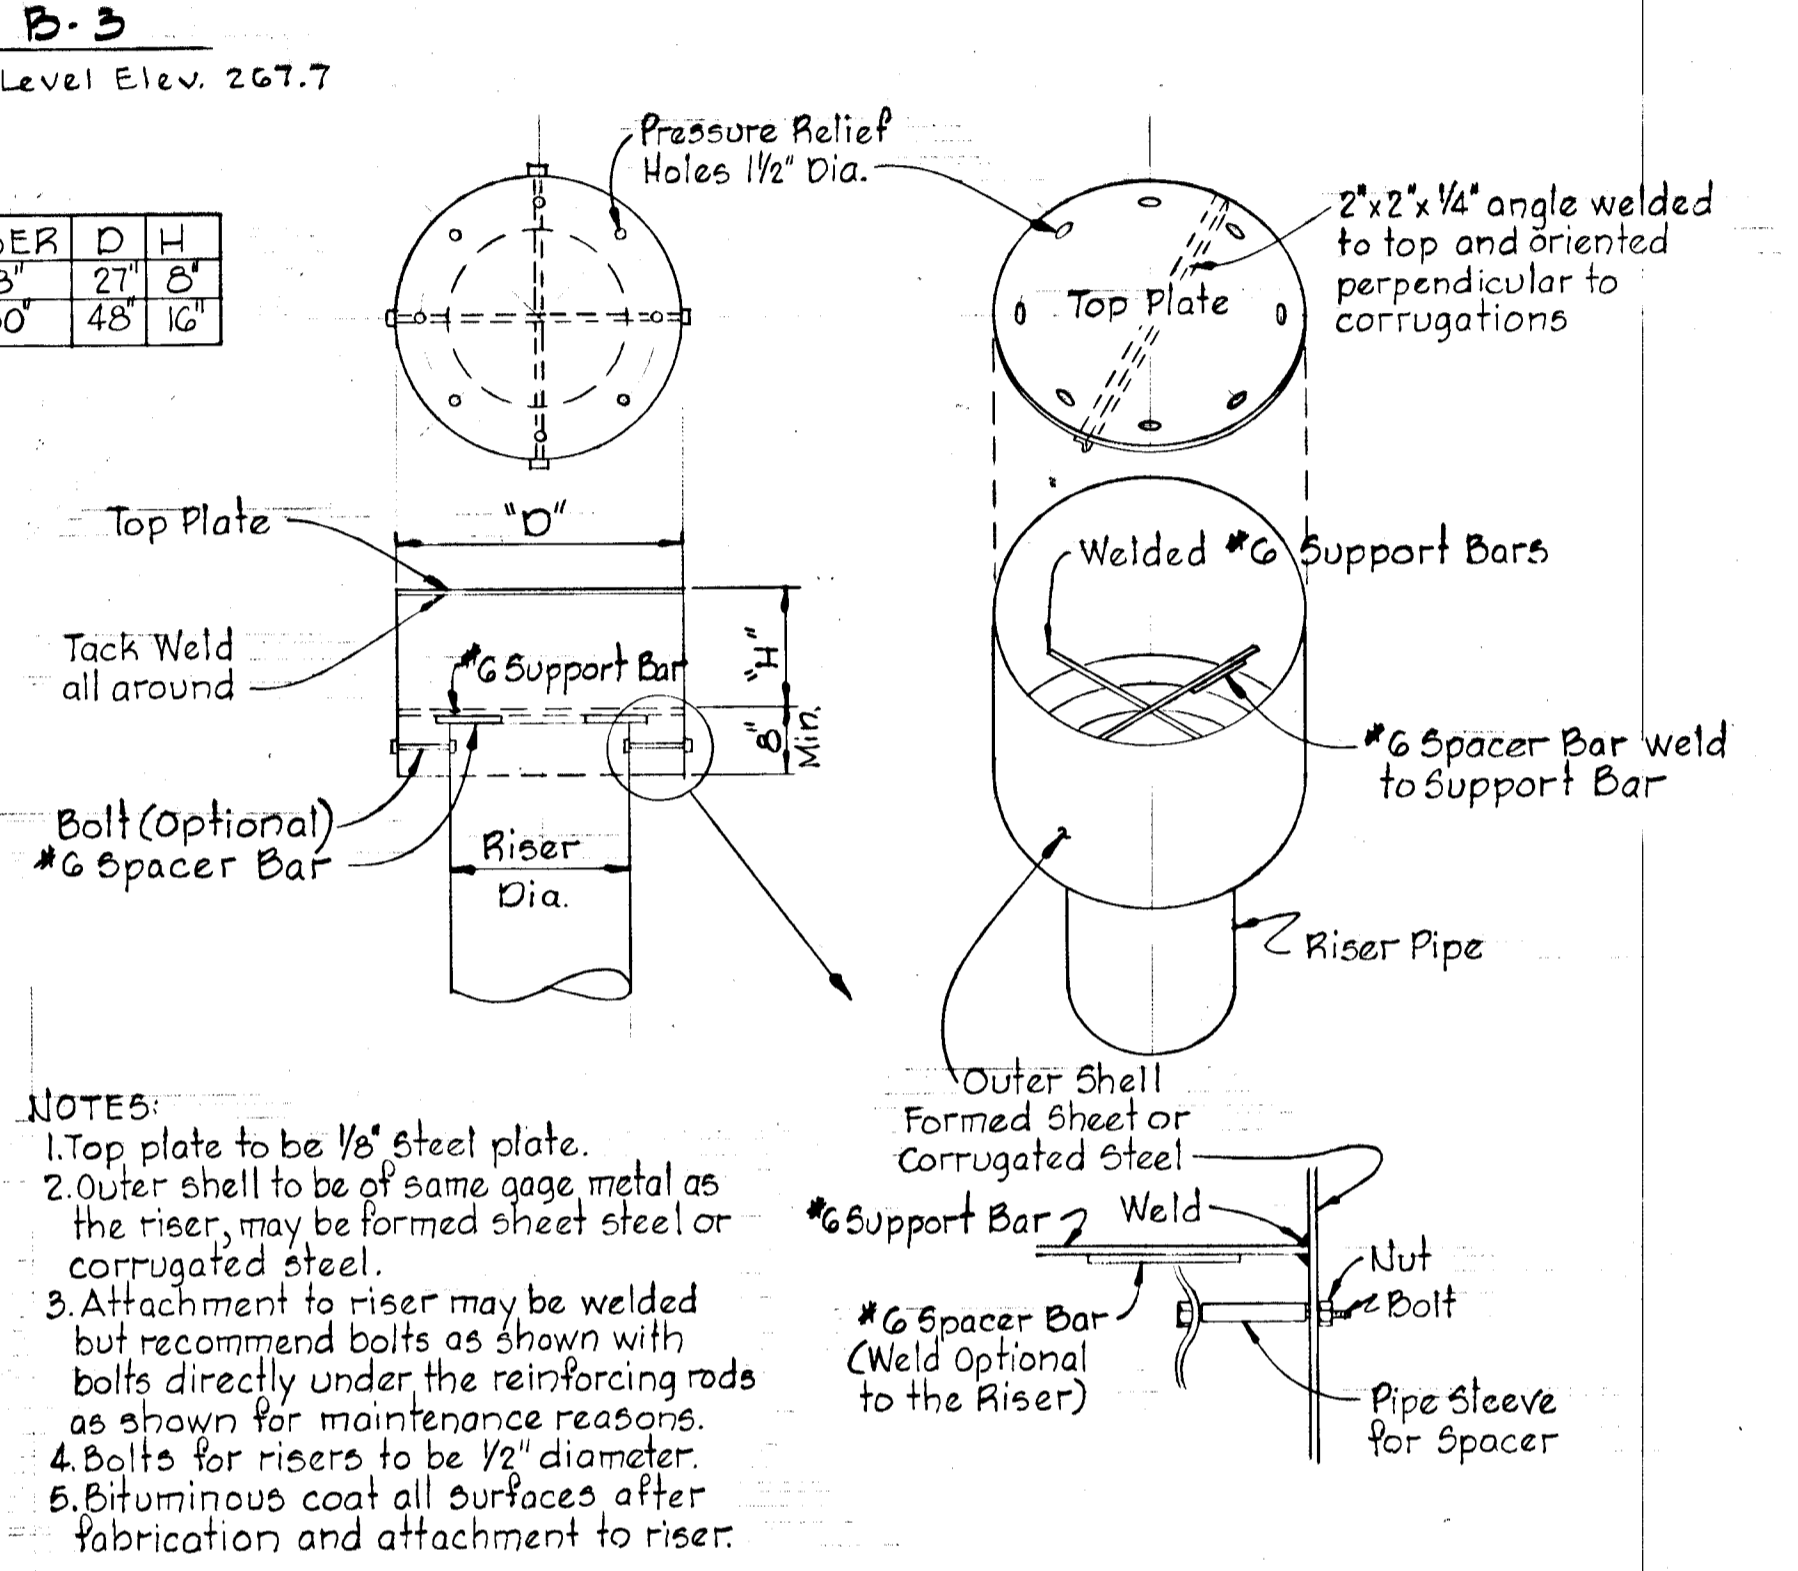 B-3
Level Elev. 267.7
Pressure Relief
Holes 1½" Dia.
2"x2"x¼" angle welded
to top and oriented
perpendicular to
corrugations
D H
27" 8"
48" 16"
Top Plate
Top Plate
"D"
Welded #6 Support Bars
Tack Weld
all around
#6 Support Bar
"H"
8"
Min.
#6 Spacer Bar weld
to Support Bar
Bolt (Optional)
#6 Spacer Bar
Riser
Dia.
Riser Pipe
Outer Shell
Formed Sheet or
Corrugated Steel
#6 Support Bar
Weld
Nut
Bolt
#6 Spacer Bar
(Weld Optional
to the Riser)
Pipe Sleeve
for Spacer
NOTES:
1. Top plate to be 1/8" steel plate.
2. Outer shell to be of same gage metal as
the riser, may be formed sheet steel or
corrugated steel.
3. Attachment to riser may be welded
but recommend bolts as shown with
bolts directly under the reinforcing rods
as shown for maintenance reasons.
4. Bolts for risers to be 1/2" diameter.
5. Bituminous coat all surfaces after
fabrication and attachment to riser.